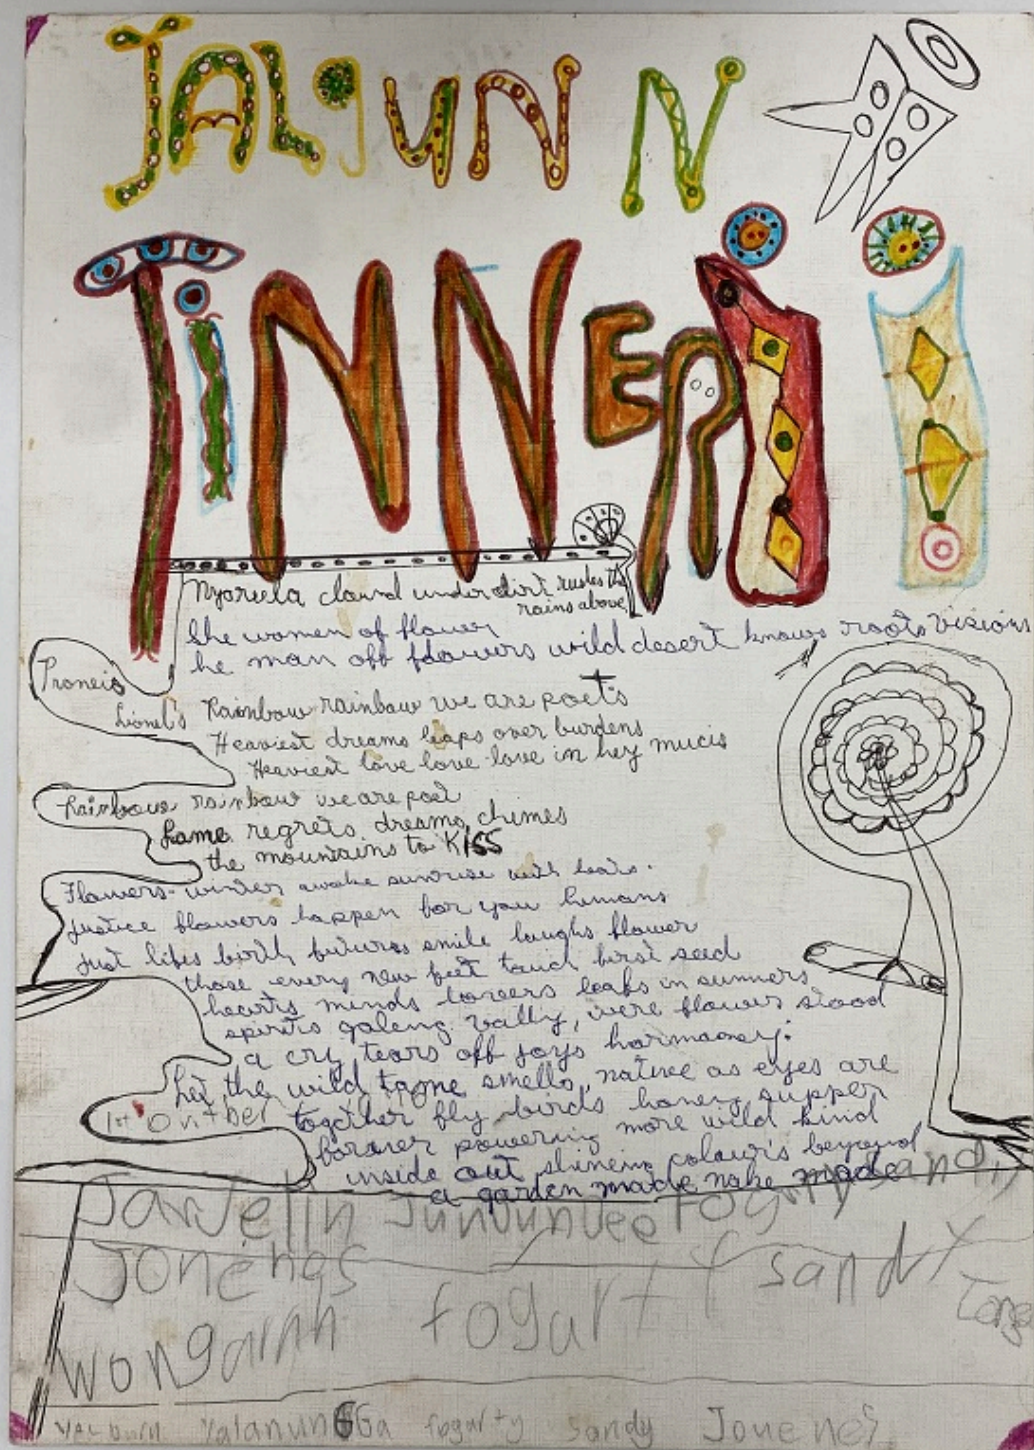 JALgUN N
TiNNERi i
Nyoruela clound under dirt rushes the
rains above
She women of flower
he man off flowers wild desert knows roots visions
Lionel's
Rainbow rainbow we are poets
Heaviest dreams leaps over burdens
Heaviest love love love in hey mucis
Rainbow rainbow we are poet
Lame regrets dreams, chimes
the mountains to KISS
Flowers winter awake sunrise with
justice flowers happen for you humans
just likes birth futures smile laughs flower
those every new feet touch first seed
hearts minds towers leafs in summers
spirits galeng vally, were flower stood
a cry tears off joys harmaoney:
Let the wild tame smells, nature as eyes are
1st together fly birds honey supper
foraver powering more wild kind
inside out shineing colour's beyond
a garden made nake made
Jarjelin Fogarty Sandy
Jonehgs
fogarty sandy
wongarnn
YalanunGGa fogarty Sandy Jouenes